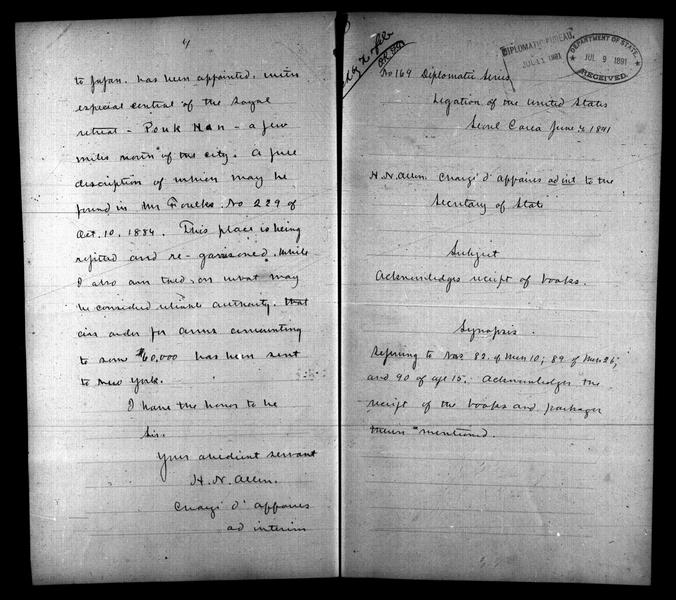 4
to Japan. has been appointed, with
especial control of the Royal
retreat - Pouk Han - a few
miles north of the city. A full
description of which may be
found in Mr Foulks No 229 of
Oct. 10, 1884. This place is being
refitted and re-garrisoned. While
I also am told, on what may
be considered reliable authority. that
an order for arms amounting
to some $60,000 has been sent
to New York.
I have the honor to be
Sir.
Your obedient servant
H. N. Allen.
Chargé d'affaires
ad interim
DIPLOMATIC BUREAU
JUL 11 1891
DEPARTMENT OF STATE,
JUL 9 1891
RECEIVED.
No 164 Diplomatic Series
Legation of the United States
Seoul Corea June 4 1891
H. N. Allen. Chargé d'affaires ad int to the
Secretary of State
Subject
Acknowledges receipt of books.
Synopsis.
Referring to Nos 82. of 10; 89 of 26;
and 90 of apl 15. Acknowledges the
receipt of the books and packages
therein mentioned.